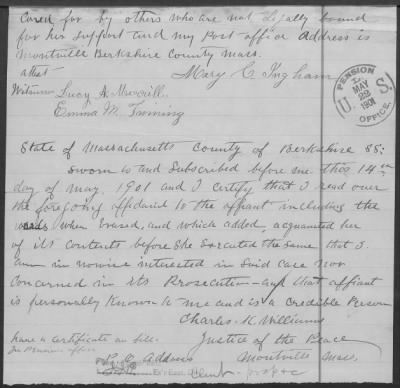 Cared for by others who are not legally bound
for her support and my Post office address is
Montville Berkshire County Mass.
attest
Mary C Ingham
PENSION
MAY
22
1901
U. S.
OFFICE.
Witness Lucy A Merrill
Emma M. Twining
State of Massachusetts County of Berkshire SS:
Sworn to and Subscribed before me this 14th
day of May, 1901 and I certify that I read over
the foregoing affidavit to the affiant including the
words when Erased, and which added, acquainted her
of its contents before she Executed the same that I
am in nowise interested in said case nor
concerned in its Prosecution and that affiant
is personally Known to me and is a credible Person
Charles K. Williams
have a certificate on file.
In Pension office
Justice of the Peace
P. O. Address Montville Mass.
Clmt